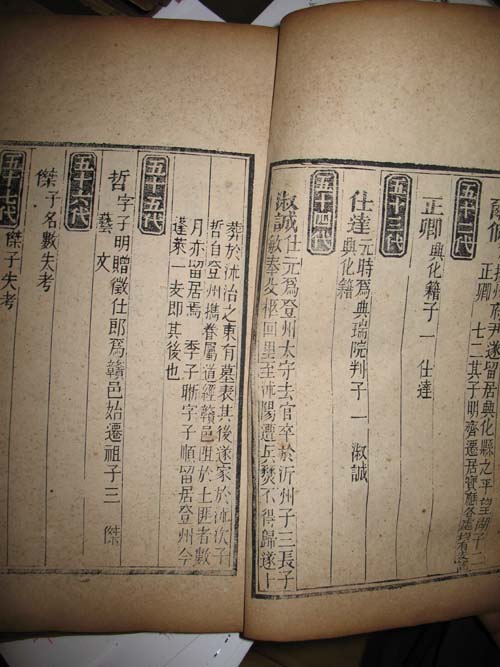 五十二代
正卿
七二其子明齊遷居寶應各處
正卿 興化籍子一 仕達
五十三代
仕達 元時爲典瑞院判子一 淑誠
興化籍
五十四代
淑誠 仕元爲登州太守去官卒於沂州子三長子
敏奉父柩回里至沭陽遭兵燹不得歸遂卜
葬於沭治之東有墓表其後遂家於沭次子
哲自登州攜眷屬道經贛邑阻於土匪者數
月亦留居焉 季子聯字子順留居登州今
蓬萊一支即其後也
五十五代
哲 字子明贈徵仕郎爲贛邑始遷祖子三 傑
藝 文
五十六代
傑 子名數失考
五十七代
傑子失考